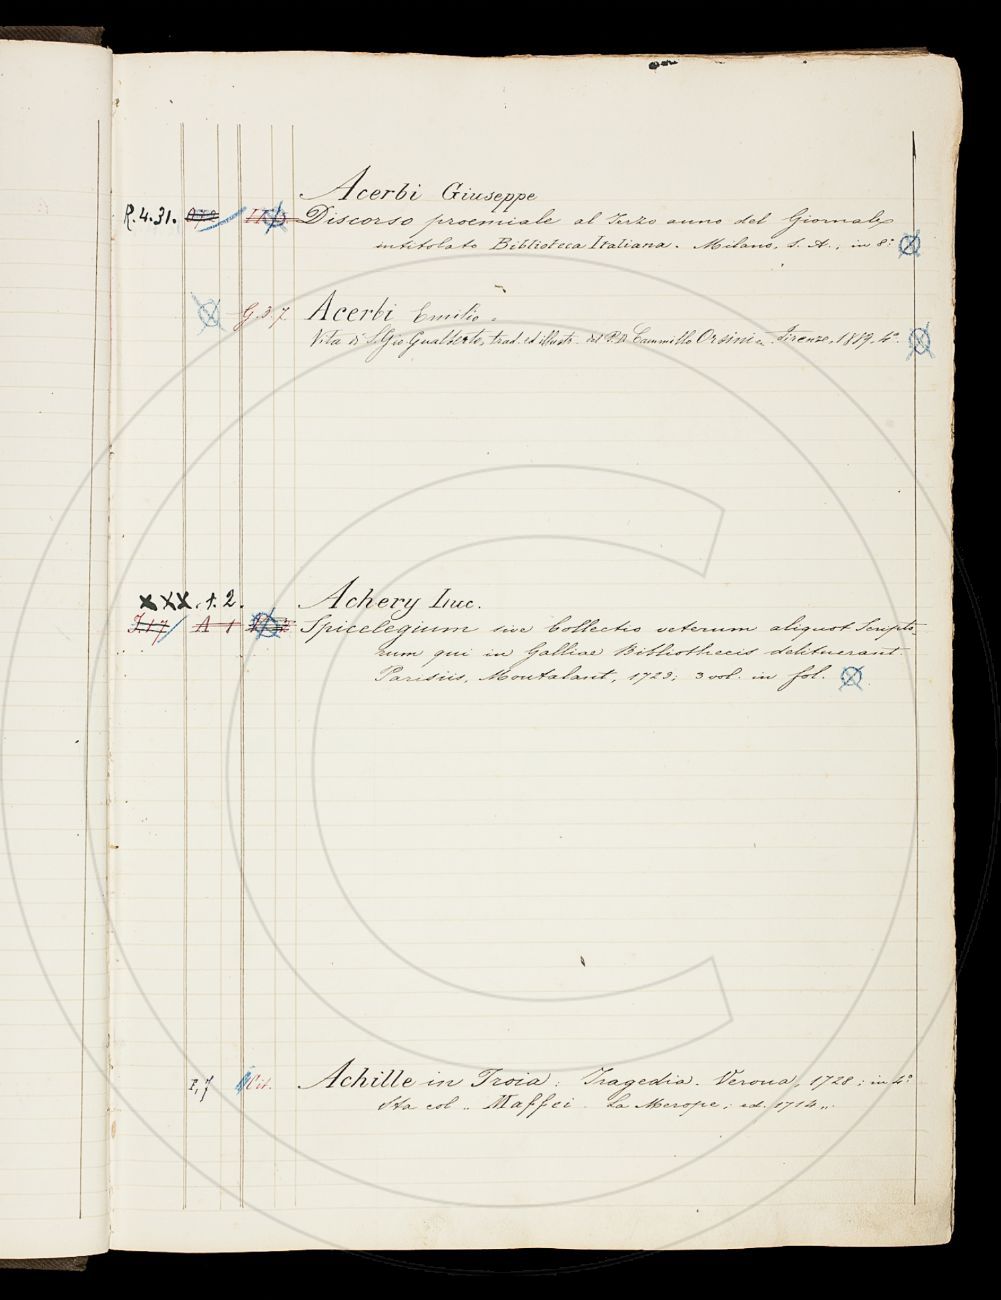 Acerbi Giuseppe
R.4.31. Discorso proemiale al Terzo anno del Giornale
intitolato Biblioteca Italiana. Milano, S. A., in 8°
G.3.7 Acerbi Emilio.
Vita di S. Gio Gualberto, trad. ed illustr. del P. D. Cammillo Orsini. Firenze, 1819. 4°.
XXX.1.2. Achery Luc.
A 1 Spicelegium sive Collectio veterum aliquot Scripto-
rum qui in Galliae Bibliothecis delituerant
Parisiis, Montalant, 1723; 3 vol. in fol.
Achille in Troia: Tragedia. Verona, 1728; in 4°
Sta col „ Maffei La Merope; ed. 1714„.